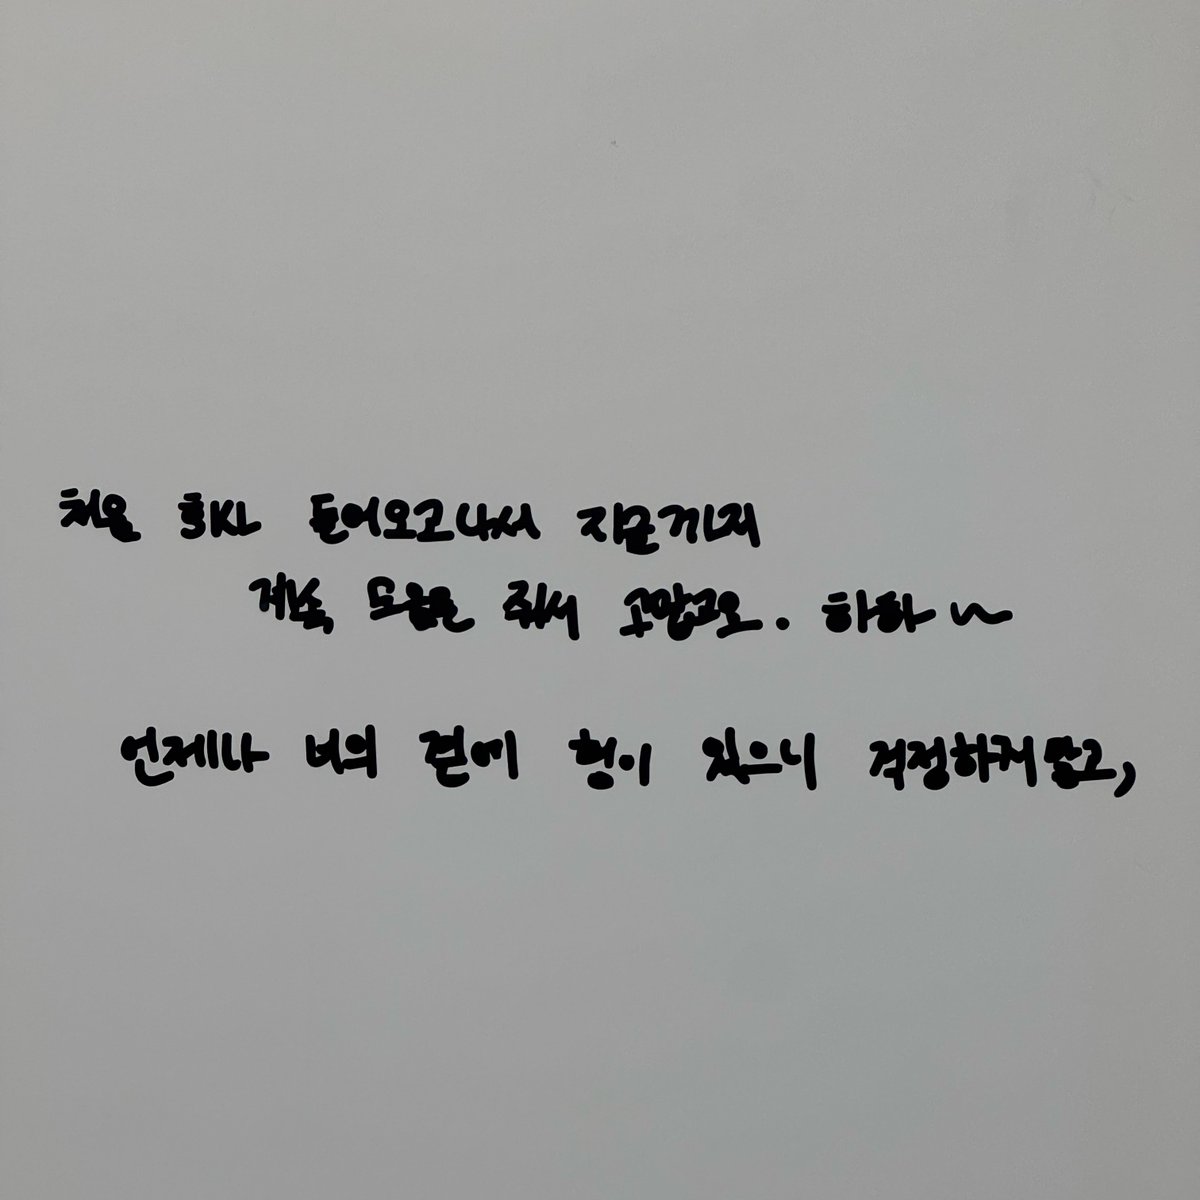 처음 흥KL 들어오고나서 지금까지
계속 도움을 줘서 고맙고요. 하하~
언제나 너의 곁에 형이 있으니 걱정하지말고,